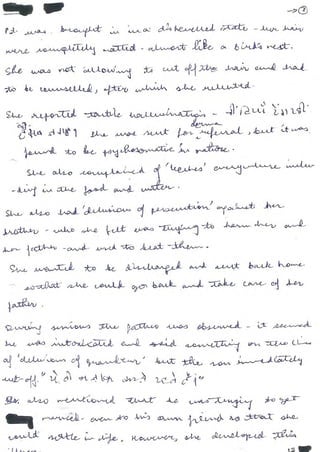 Pt. was brought in in a dishevelled state - her hair
were completely matted - almost like a bird's nest.
She was not allowing to cut off the hair and had
to be counselled, after which she relented.
She reported tactile hallucinations -
she was sent for derma referral, but it was
found to be psychosomatic in nature.
She also complained of 'leeches' everywhere inclu
-ding in the food and water.
She also had 'delusions of persecution' against her
brother - who she felt was trying to harm her and
her father - and used to beat them.
She wanted to be discharged and sent back home
so that she could go back and take care of her
father.
During sessions the father was observed - it seemed
he was intoxicated and said something on the lines
of 'delusions of grandeur' but the son immediately
cut-off.
also mentioned that he was trying to get
married even to his own friend so that she
could settle in life. However, she developed this